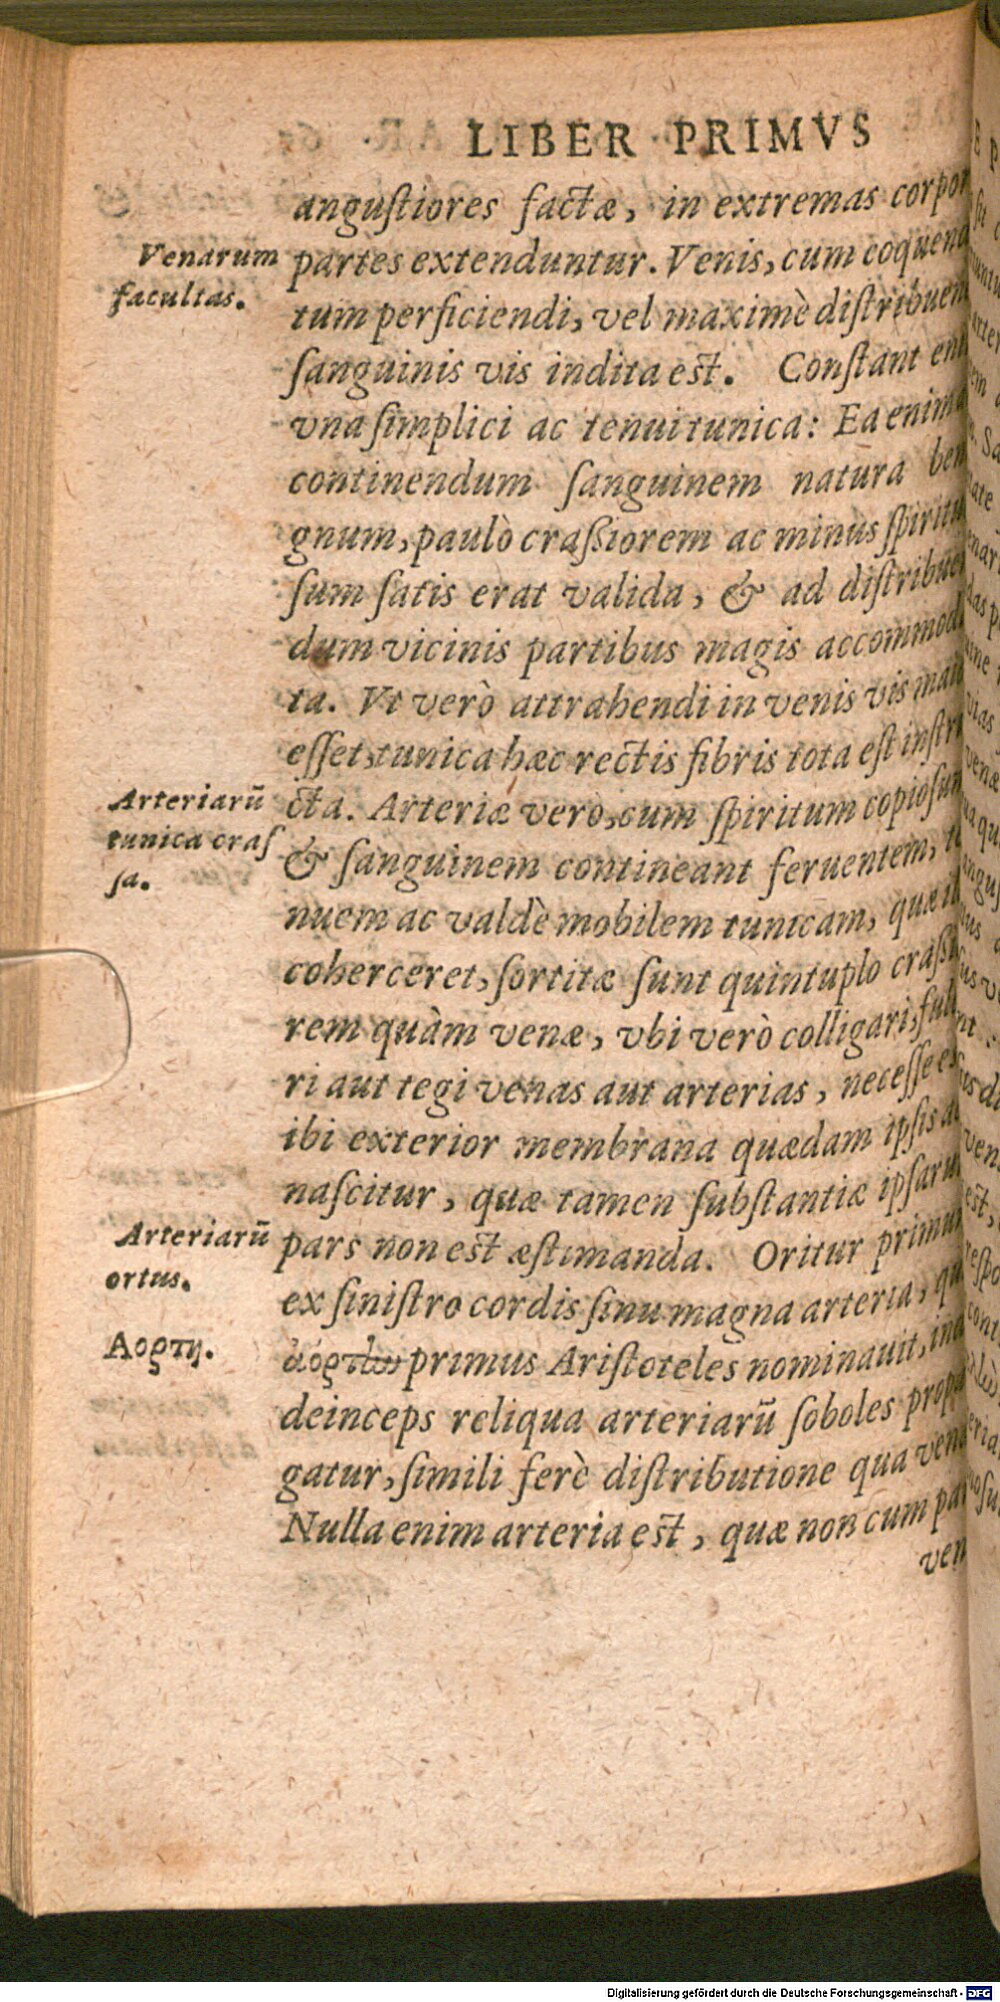 LIBER PRIMVS
anguſtiores factæ, in extremas corpor
Venarum
facultas.
partes extenduntur. Venis, cum coquend
tum perficiendi, vel maximè diſtribuen
ſanguinis vis indita est. Conſtant eni
vna ſimplici ac tenui tunica: Ea enim a
continendum ſanguinem natura ben
gnum, paulò craſsiorem ac minus ſpiritu
ſum ſatis erat valida, & ad diſtribuen
dum vicinis partibus magis accommod
ta. Vt verò attrahendi in venis vis maio
eſſet, tunica hæc rectis fibris tota eſt inſtr
Arteriarū
tunica craſ
ſa.
cta. Arteriæ verò, cum ſpiritum copioſum
& ſanguinem contineant feruentem, te
nuem ac valdè mobilem tunicam, quæ il
coherceret, ſortitæ ſunt quintuplo craſsi
rem quàm venæ, vbi verò colligari, ful
ri aut tegi venas aut arterias, neceſſe eſ
ibi exterior membrana quædam ipſis a
naſcitur, quæ tamen ſubſtantiæ ipſaru
Arteriarū
ortus.
pars non est æſtimanda. Oritur primum
ex ſiniſtro cordis ſinu magna arteria, qu
Αορτη.
ἀορτὴν primus Ariſtoteles nominauit, ind
deinceps reliqua arteriarū ſoboles propa
gatur, ſimili ferè diſtributione qua vena
Nulla enim arteria est, quæ non cum par
ven
Digitalisierung gefördert durch die Deutsche Forschungsgemeinschaft - DFG